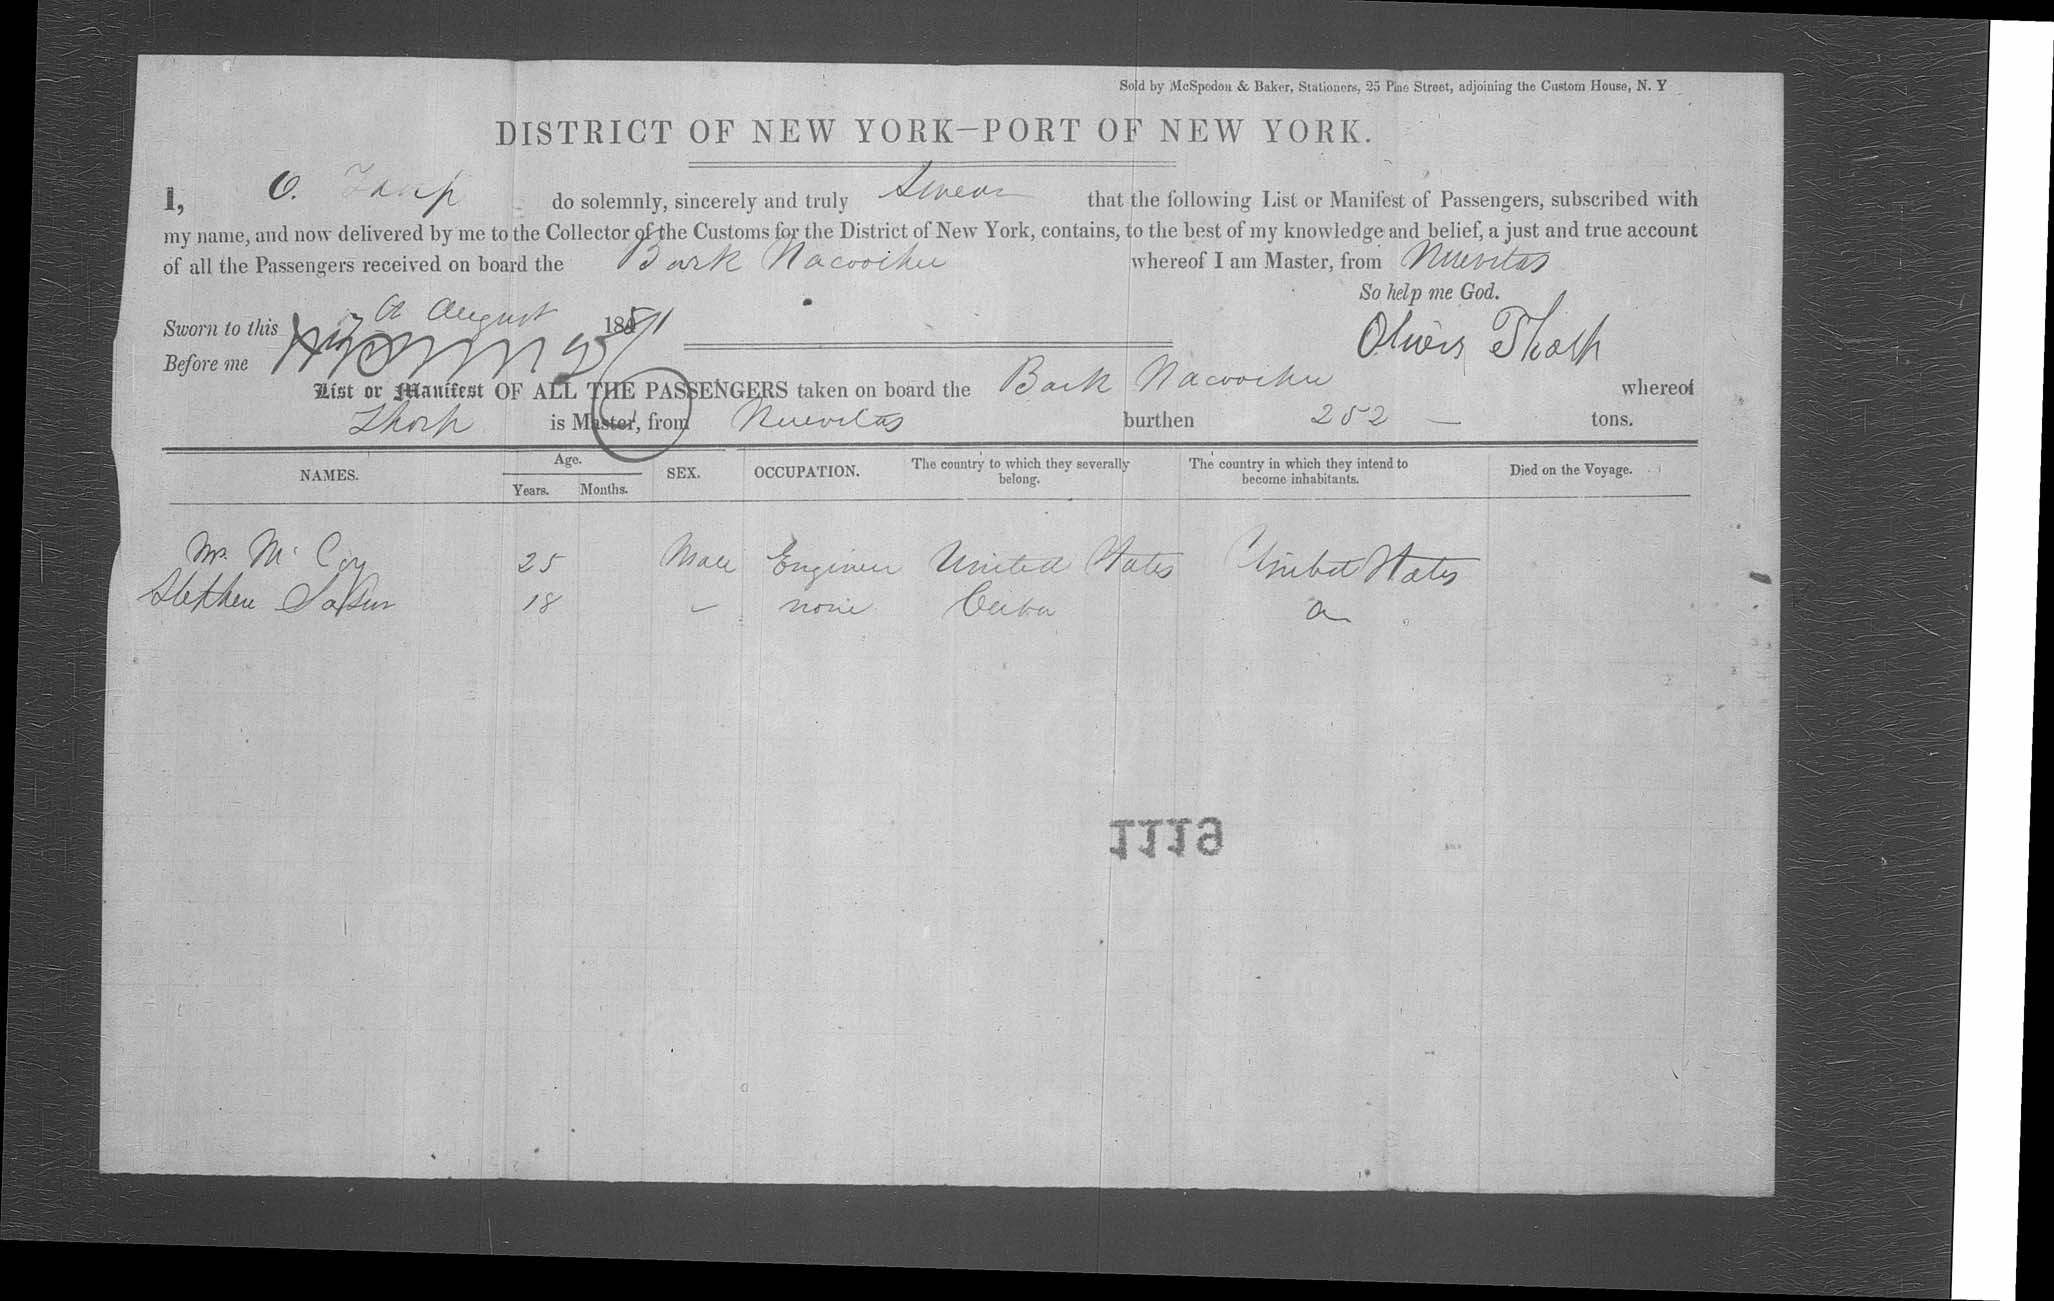 Sold by McSpedon & Baker, Stationers, 25 Pine Street, adjoining the Custom House, N. Y
DISTRICT OF NEW YORK—PORT OF NEW YORK.
I, O. do solemnly, sincerely and truly Swear that the following List or Manifest of Passengers, subscribed with
my name, and now delivered by me to the Collector of the Customs for the District of New York, contains, to the best of my knowledge and belief, a just and true account
of all the Passengers received on board the Bark Nacoochee whereof I am Master, from Nuevitas
So help me God.
Sworn to this August 1851
Oliver Thorp
Before me
List or Manifest OF ALL THE PASSENGERS taken on board the Bark Nacoochee whereof
Thorp is Master, from Nuevitas burthen 252 — tons.
NAMES. Age. Years. Months. SEX. OCCUPATION. The country to which they severally belong. The country in which they intend to become inhabitants. Died on the Voyage.
Mr. Mc Coy 25 Male Engineer United States United States
Stephen 18 – none Cuba
1119